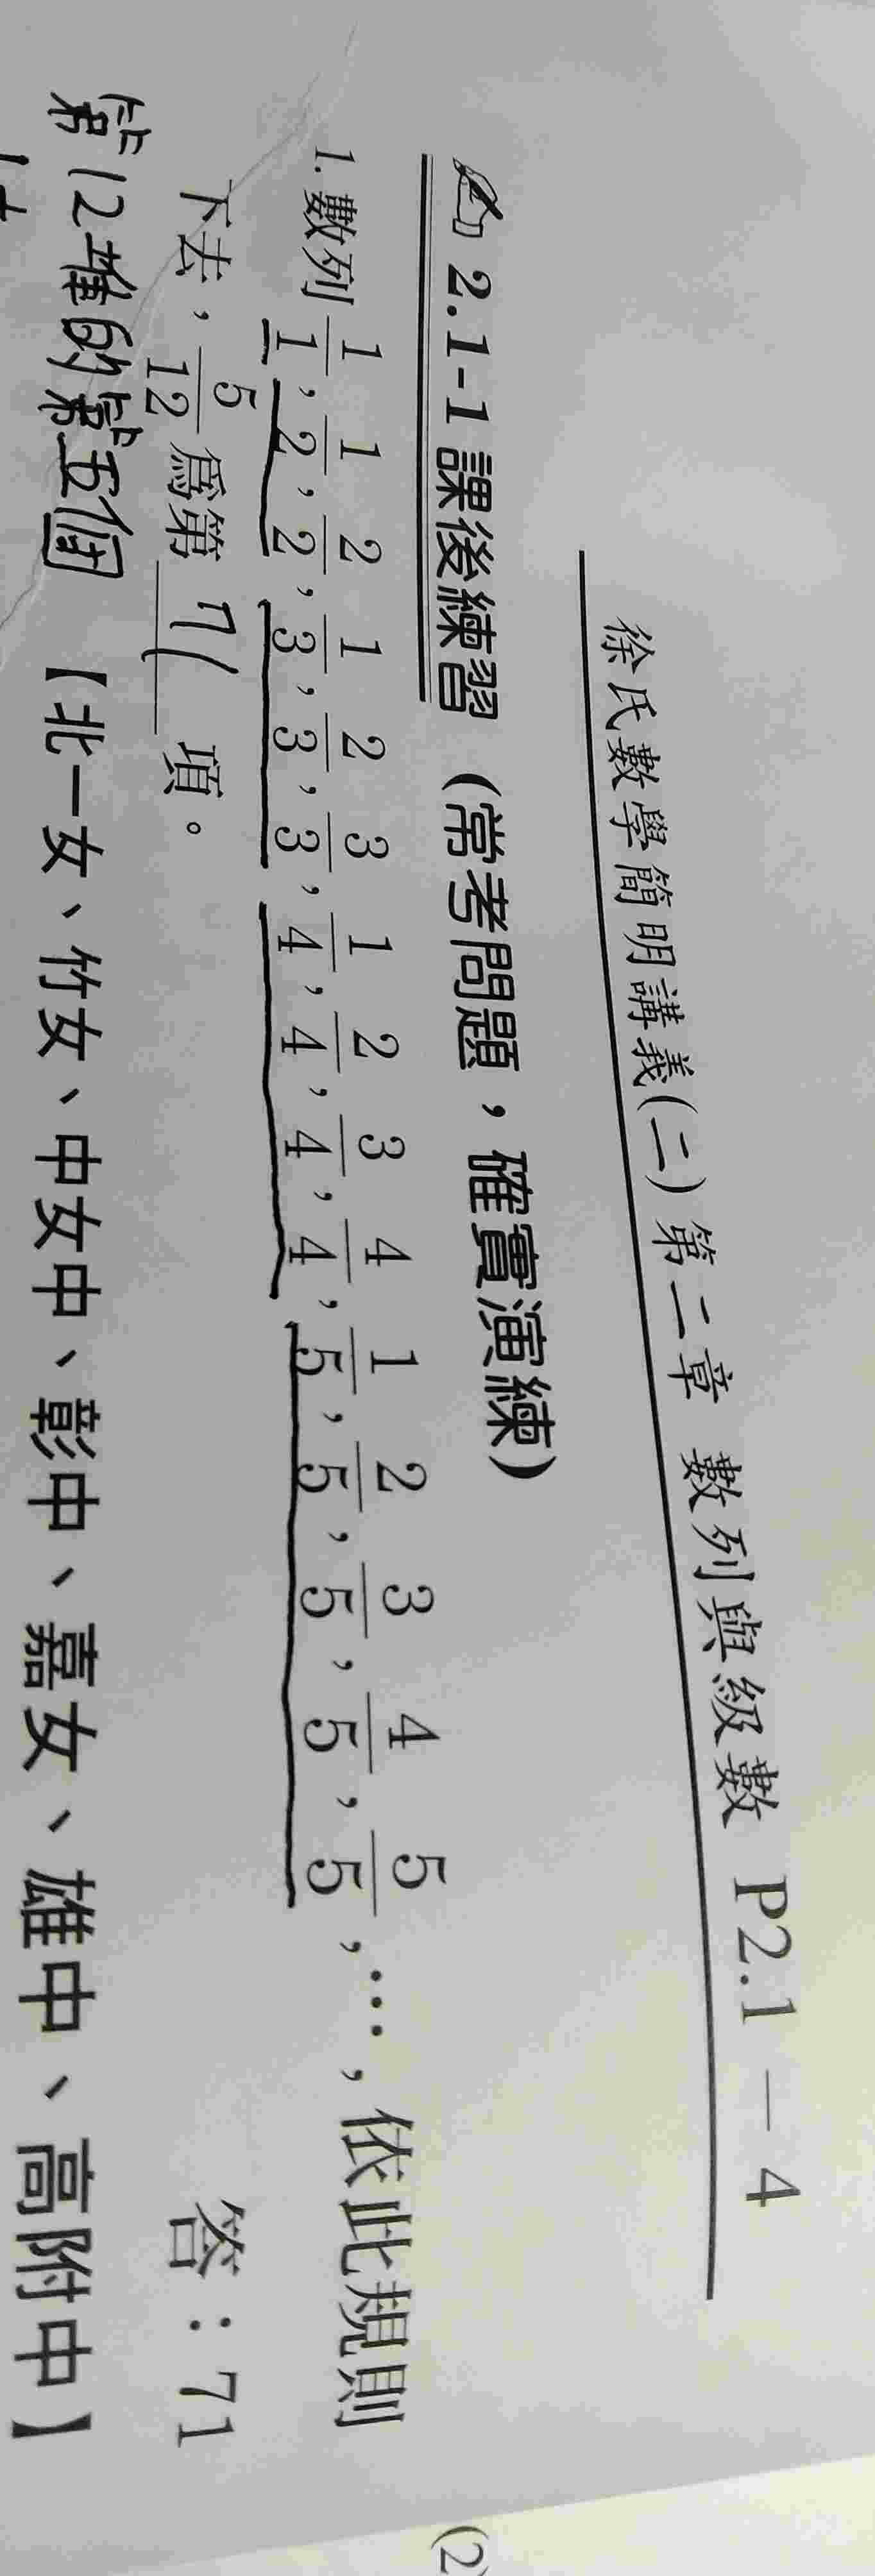 徐氏數學簡明講義(二)第二章 數列與級數 P2.1 － 4
✍ 2.1-1 課後練習（常考問題，確實演練）
1. 數列 1/1, 1/2, 2/2, 1/3, 2/3, 3/3, 1/4, 2/4, 3/4, 4/4, 1/5, 2/5, 3/5, 4/5, 5/5, …, 依此規則
下去，5/12 為第 71 項。 答：71
第12堆的第五個 【北一女、竹女、中女中、彰中、嘉女、雄中、高附中】
(2)